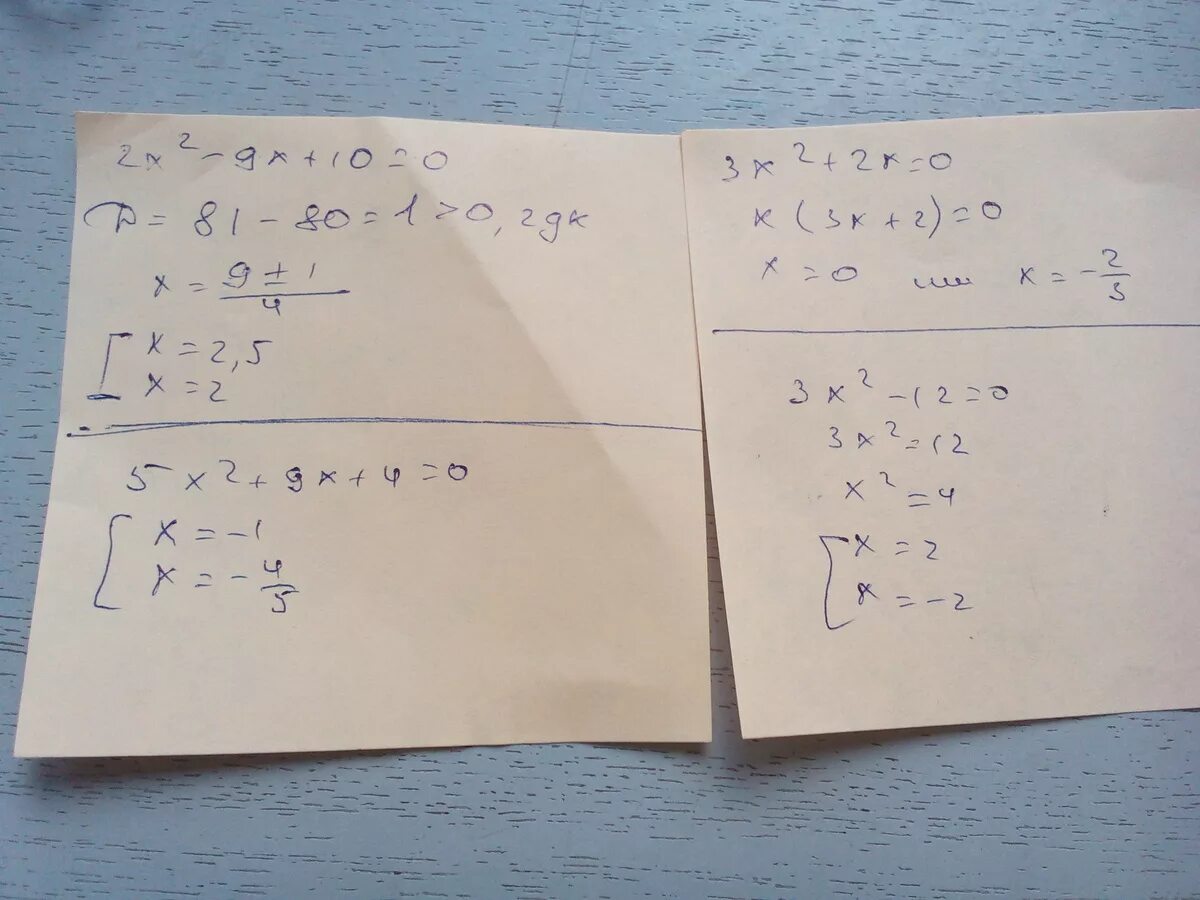 2x² - 9x + 10 = 0
D = 81 - 80 = 1 > 0, 2 gk
x = (9 ± 1)/4
[ x = 2,5
x = 2
5x² + 9x + 4 = 0
[ x = -1
x = -4/5
3x² + 2x = 0
x (3x + 2) = 0
x = 0 или x = -2/3
3x² - 12 = 0
3x² = 12
x² = 4
[ x = 2
x = -2